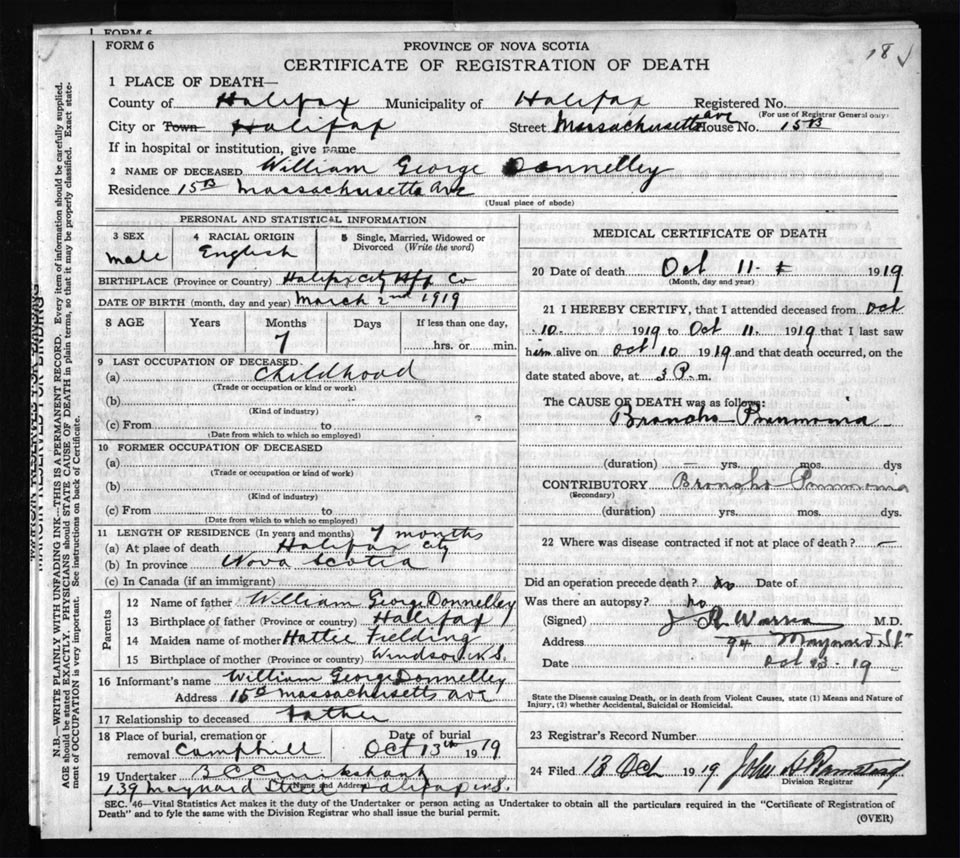 FORM 6
FORM 6
PROVINCE OF NOVA SCOTIA
CERTIFICATE OF REGISTRATION OF DEATH
18
1 PLACE OF DEATH—
County of Halifax Municipality of Halifax Registered No.
(For use of Registrar General only)
City or Town Halifax Street Massachusetts ave House No. 15B
If in hospital or institution, give name
2 NAME OF DECEASED William George Donnelley
Residence 15B Massachusetts Ave
(Usual place of abode)
PERSONAL AND STATISTICAL INFORMATION
3 SEX
male
4 RACIAL ORIGIN
English
5 Single, Married, Widowed or Divorced (Write the word)
BIRTHPLACE (Province or Country) Halifax City Hfx Co
DATE OF BIRTH (month, day and year) March 2nd 1919
8 AGE Years Months Days If less than one day,
7 hrs. or min.
9 LAST OCCUPATION OF DECEASED
(a) Childhood
(Trade or occupation or kind or work)
(b)
(Kind of industry)
(c) From to
(Date from which to which so employed)
10 FORMER OCCUPATION OF DECEASED
(a)
(Trade or occupation or kind of work)
(b)
(Kind of industry)
(c) From to
(Date from which to which so employed)
11 LENGTH OF RESIDENCE (In years and months) 7 months
(a) At place of death Halifax City
(b) In province Nova Scotia
(c) In Canada (if an immigrant)
Parents
12 Name of father William George Donnelley
13 Birthplace of father (Province or country) Halifax
14 Maiden name of mother Hattie Fielding
15 Birthplace of mother (Province or country) Windsor N.S.
16 Informant's name William George Donnelley
Address 15B Massachusetts Ave
17 Relationship to deceased Father
18 Place of burial, cremation or removal Camphill
Date of burial
Oct 13th 1919
19 Undertaker
(Name and Address)
139 Maynard Street Halifax N.S.
MEDICAL CERTIFICATE OF DEATH
20 Date of death Oct 11- 1919
(Month, day and year)
21 I HEREBY CERTIFY, that I attended deceased from Oct
10 1919 to Oct 11 1919 that I last saw
him alive on Oct 10 1919 and that death occurred, on the
date stated above, at 3 P. m.
The CAUSE OF DEATH was as follows:
Broncho Pnumonia
(duration) yrs. mos. dys
CONTRIBUTORY Broncho Pnumonia
(Secondary)
(duration) yrs. mos. dys.
22 Where was disease contracted if not at place of death? —
Did an operation precede death? no Date of
Was there an autopsy? no
(Signed) M.D.
Address 94 Maynard St
Date Oct 13 - 19
State the Disease causing Death, or in death from Violent Causes, state (1) Means and Nature of
Injury, (2) whether Accidental, Suicidal or Homicidal.
23 Registrar's Record Number
24 Filed 13 Oct 1919 John
Division Registrar
SEC. 46—Vital Statistics Act makes it the duty of the Undertaker or person acting as Undertaker to obtain all the particulars required in the "Certificate of Registration of
Death" and to fyle the same with the Division Registrar who shall issue the burial permit.
(OVER)
N.B.—WRITE PLAINLY WITH UNFADING INK—THIS IS A PERMANENT RECORD. Every item of information should be carefully supplied.
AGE should be stated EXACTLY. PHYSICIANS should STATE CAUSE OF DEATH in plain terms, so that it may be properly classified. Exact state-
ment of OCCUPATION is very important. See instructions on back of Certificate.